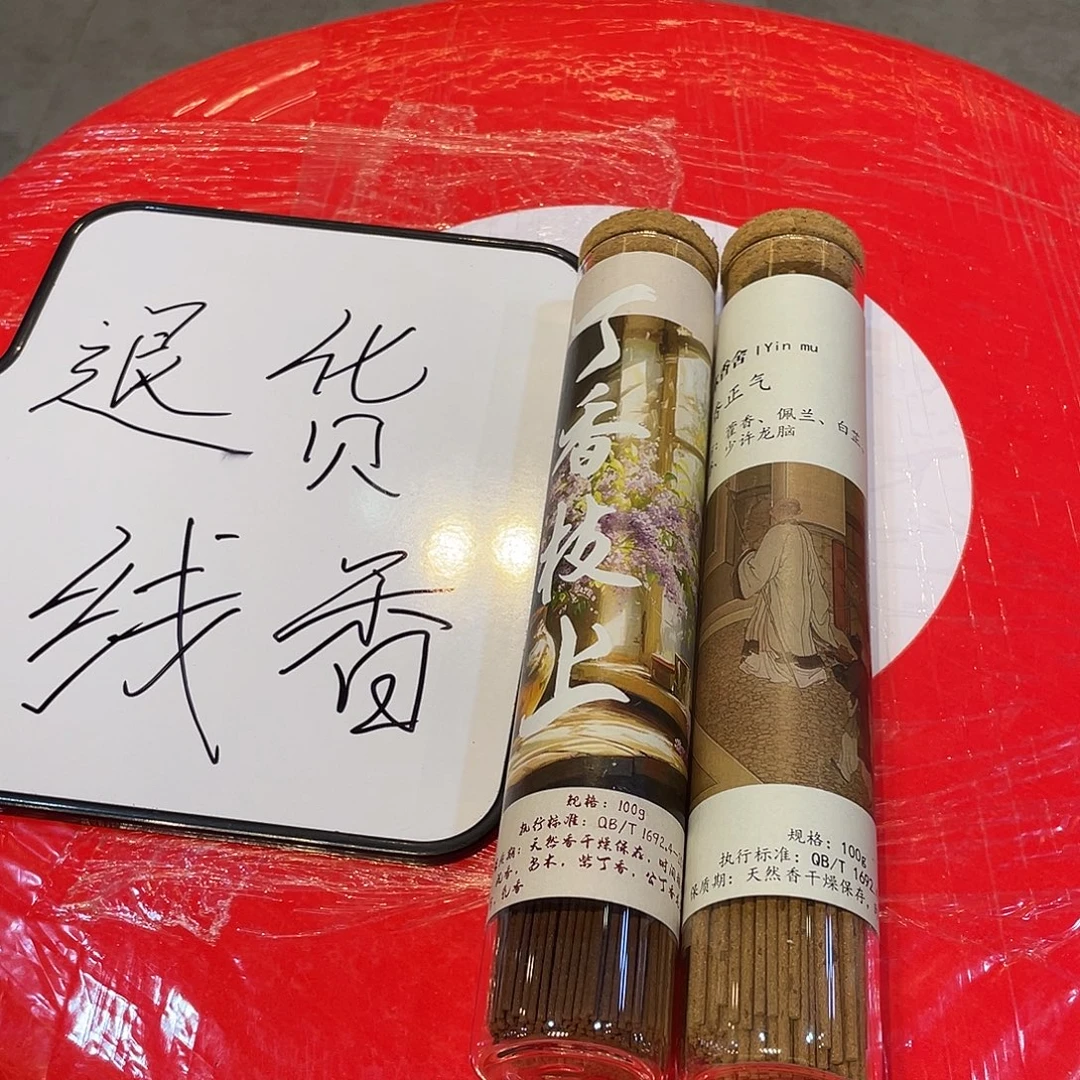 退货
线香
丁香枝上
规格：100g
执行标准：QB/T 1692.4-
质期：天然香干燥保存，时间
沉香，岩木，紫丁香，公丁香
乳香
香舍 |Yin mu
香正气
藿香、佩兰、白芷、
少许龙脑
规格：100g
执行标准：QB/T 1692.
保质期：天然香干燥保存，